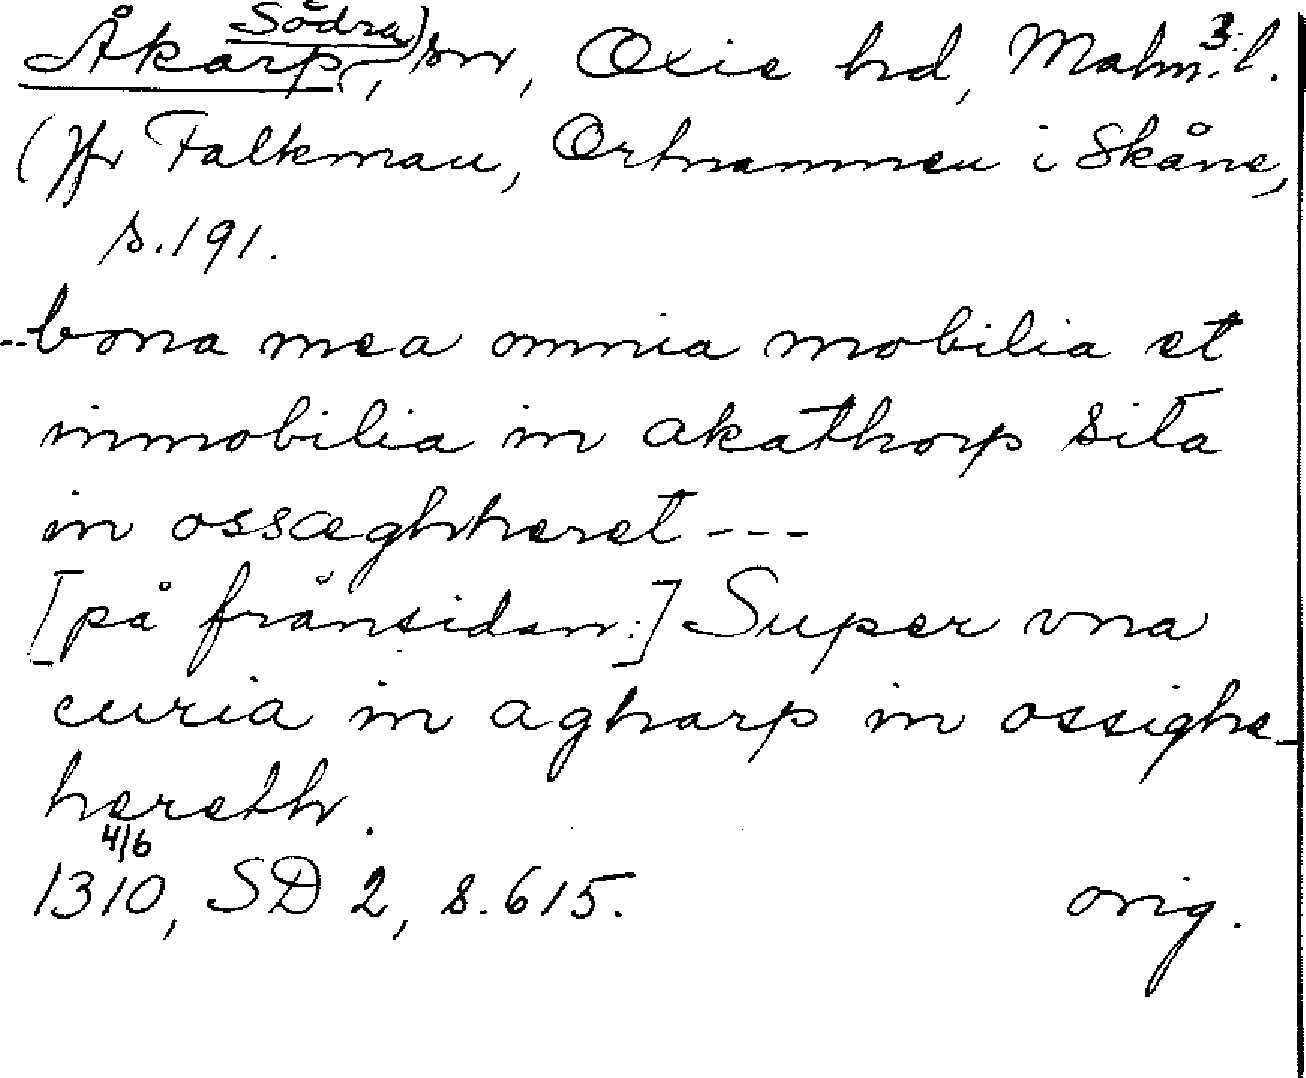 Åkarp, (Södra) sn, Oxie hd, Malm. l. 3:
(Jfr Falkman, Ortnamnen i Skåne,
s. 191.
--bona mea omnia mobilia et
immobilia in akathorp sita
in ossæghheret ---
[på frånsidan:] Super vna
curia in agharp in ossighe-
hereth.
1310 4/6, SD 2, s. 615. orig.